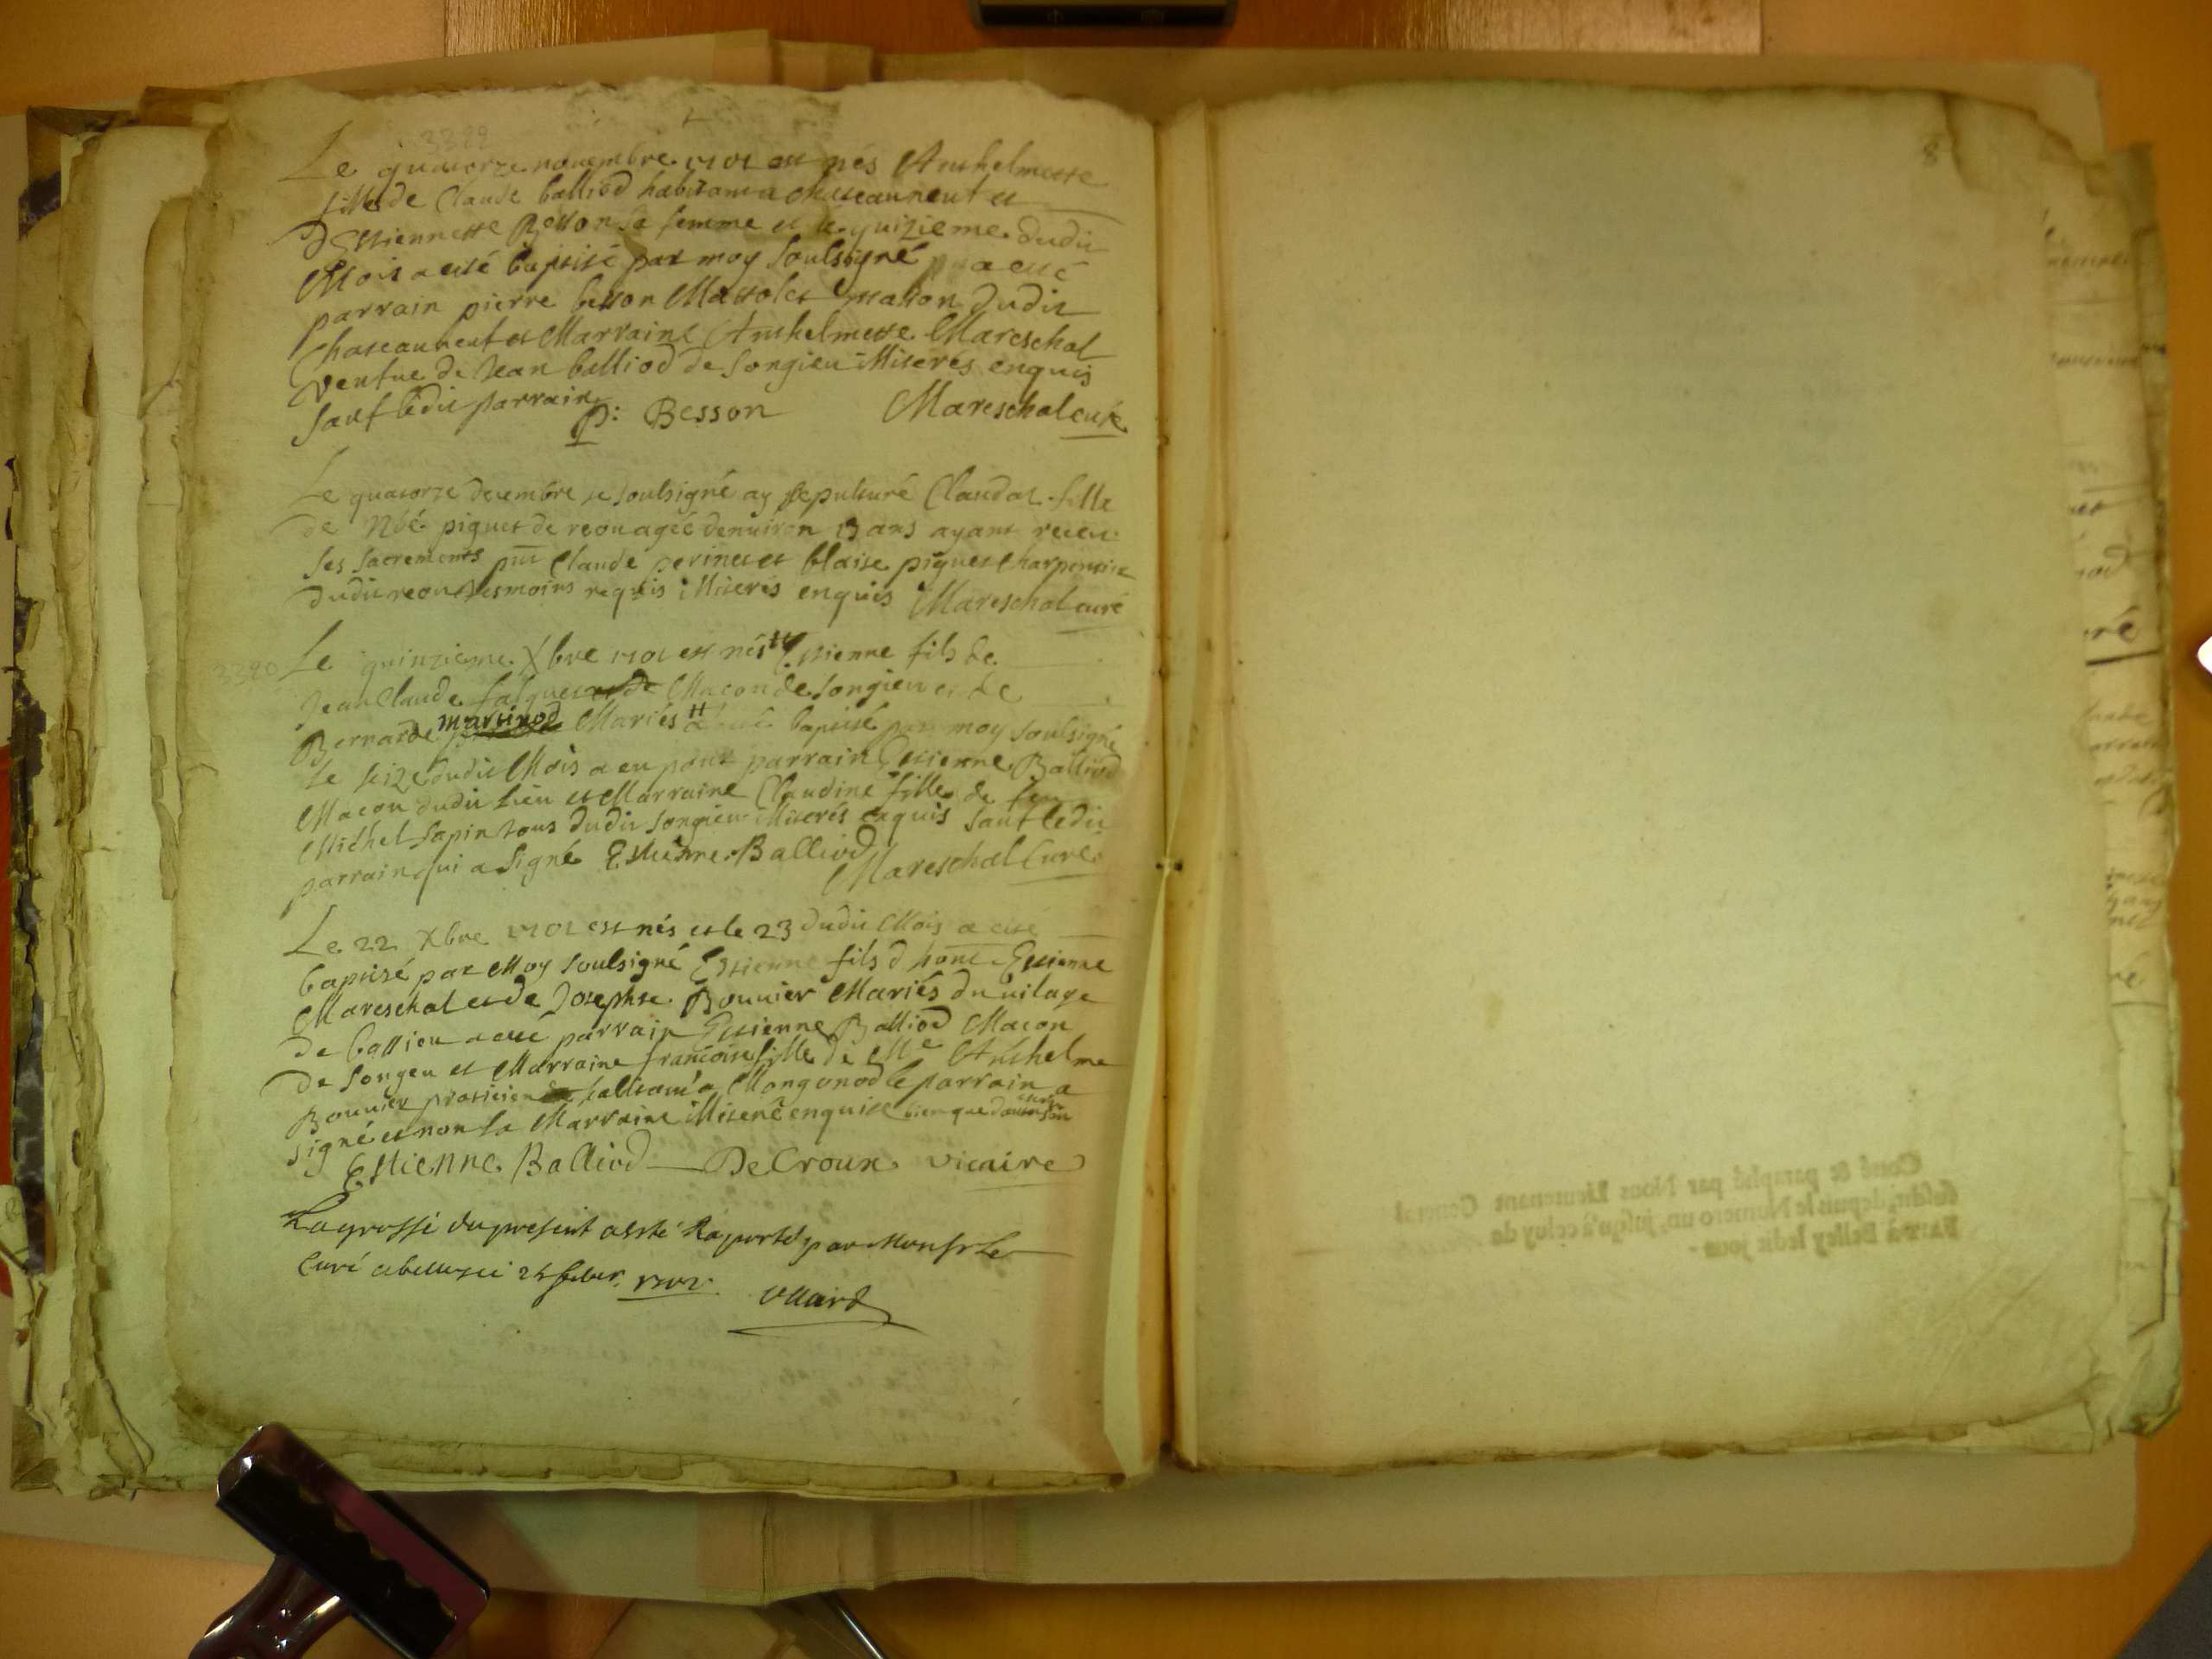 3389
Le quatorze novembre 1701 est nés Anthelmette
fille de Claude balliod habitant a chateauneuf et
d'Estiennette Besson sa femme et le quizieme dudit
Mois a esté baptisé par moy soulsigné a esté
parrain pierre besson Masson dudit
Chateauneuf et Marraine Anthelmette Mareschal
veufue de Jean balliod de Songieu Miterés enquis
sauf ledit parrain
P: Besson Mareschal curé
Le quatorze decembre je soulsigné ay sepulturé Claudat fille
de piguet de reou agée denuiron 13 ans ayant receu
ses sacrements pnt Claude perinet et blaise piguet charpentier
dudit reou tesmoins requis Miterés enquis Mareschal curé
3390
Le quinzieme Xbre 1701 est nés # Estienne fils de
Jean Claude Macon de Songieu et de
Bernarde Martinod Mariés # a esté baptisé par moy soulsigné
Le seize dudit Mois a eu pour parrain Estienne Balliod
Macon dudit Lieu et Marraine Claudine fille de feu
Michel Sapin tous dudit Songieu Miterés enquis sauf ledit
parrain qui a signé Estienne Balliod
Mareschal Curé
Le 22 Xbre 1701 est nés et le 23 dudit Mois a esté
baptisé par Moy soulsigné Estienne fils d'hont Estienne
Mareschal et de Josephte Bouuier Mariés du uilage
de bassieu a esté parrain Estienne Balliod Macon
de Songeu et Marraine francoise fille de Me Anthelme
Bouuier praticien habitant a Mongonod le parrain a
signé et non la Marraine Miteré enquise bien que
Estienne Balliod De Croux vicaire
La grosse du present a esté Raporté par Monsr Le
Curé 1702
8
Cotté & paraphé par Nous Lieutenant General
susdit, depuis le Numero un, jusqu'à celuy de
Fait à Belley ledit jour